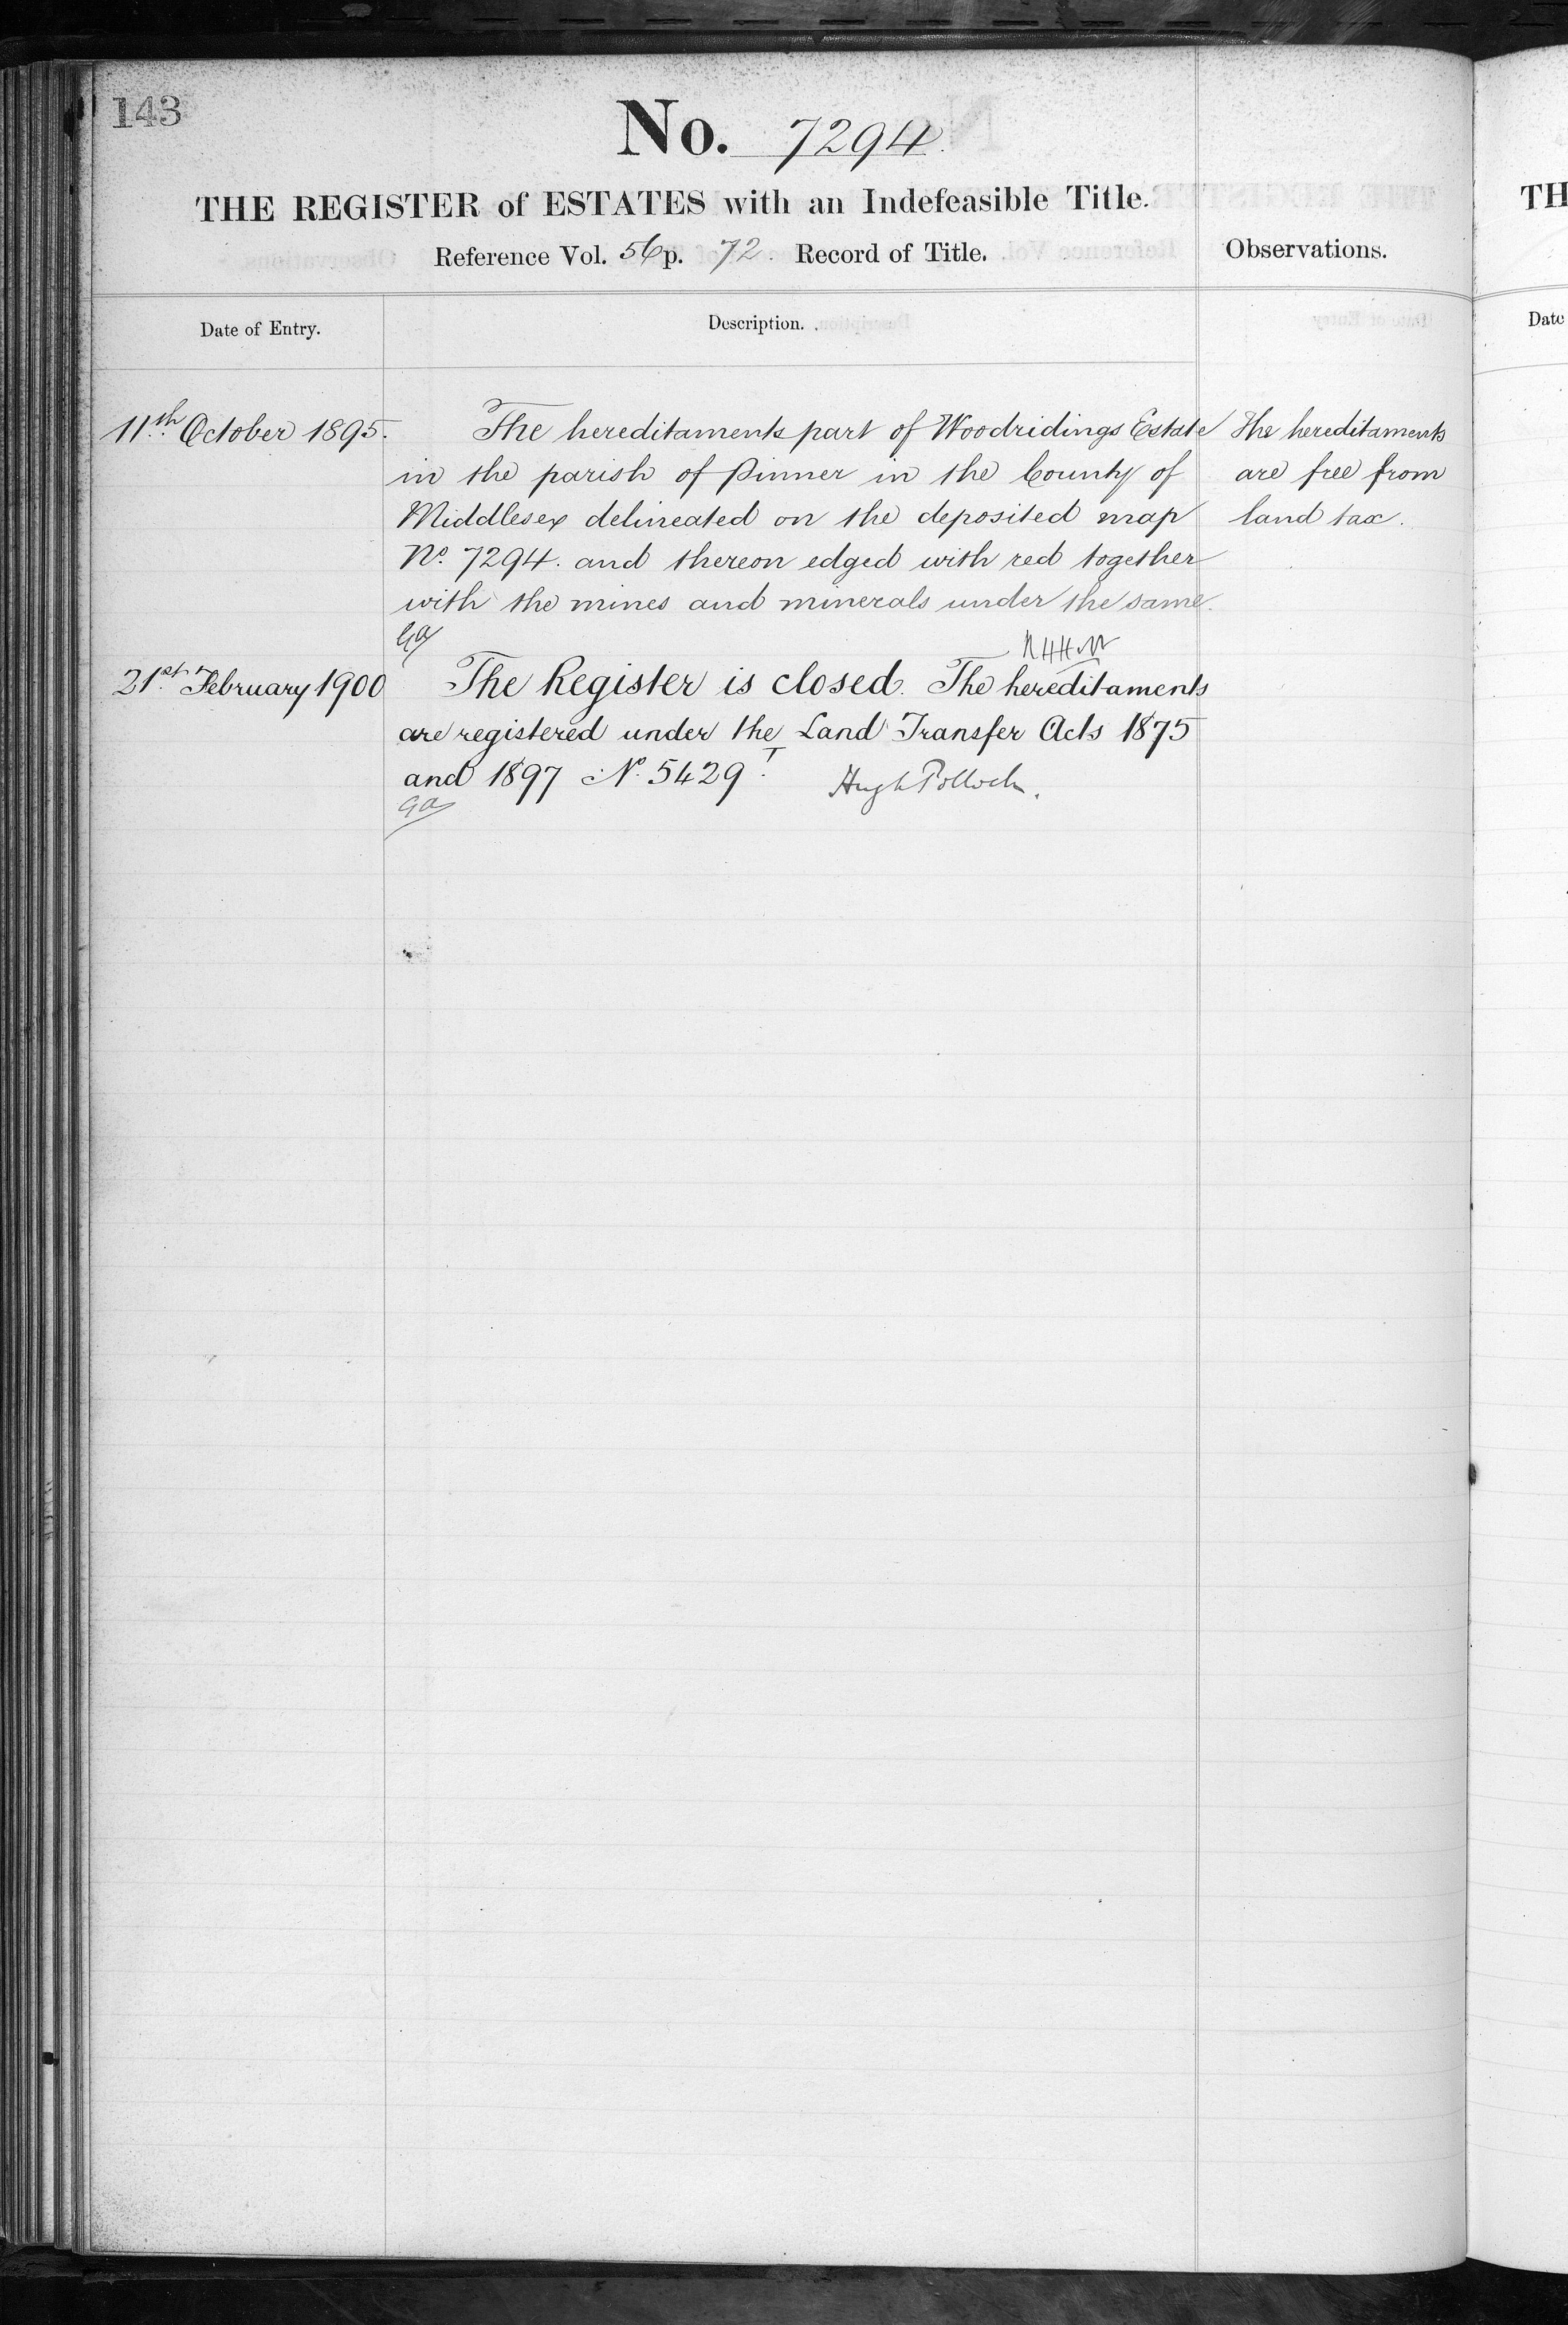 143
No. 7294.
THE REGISTER of ESTATES with an Indefeasible Title.
Reference Vol. 56 p. 72. Record of Title.
Observations.
Date of Entry.
Description.
11th October 1895.
The hereditaments part of Woodridings Estate
in the parish of Pinner in the County of
Middlesex delineated on the deposited map
No. 7294. and thereon edged with red together
with the mines and minerals under the same.
The hereditaments
are free from
land tax.
21st February 1900
The Register is closed. The hereditaments
are registered under the Land Transfer Acts 1875
and 1897 No. 5429.
Hugh Pollock.
TH
Date